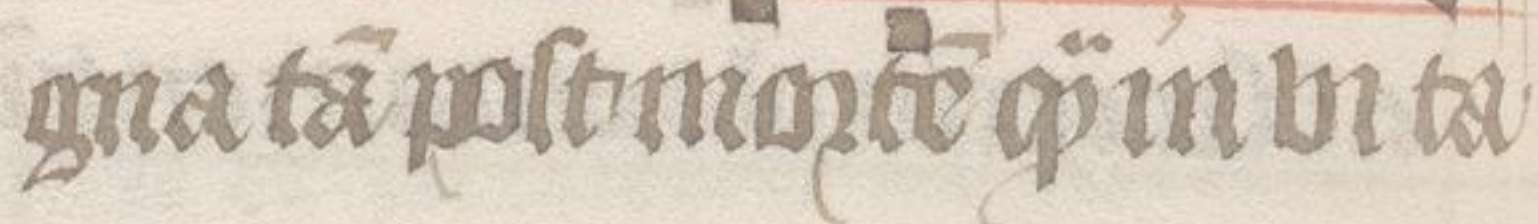 gna tā post mortē q̈ in vi ta